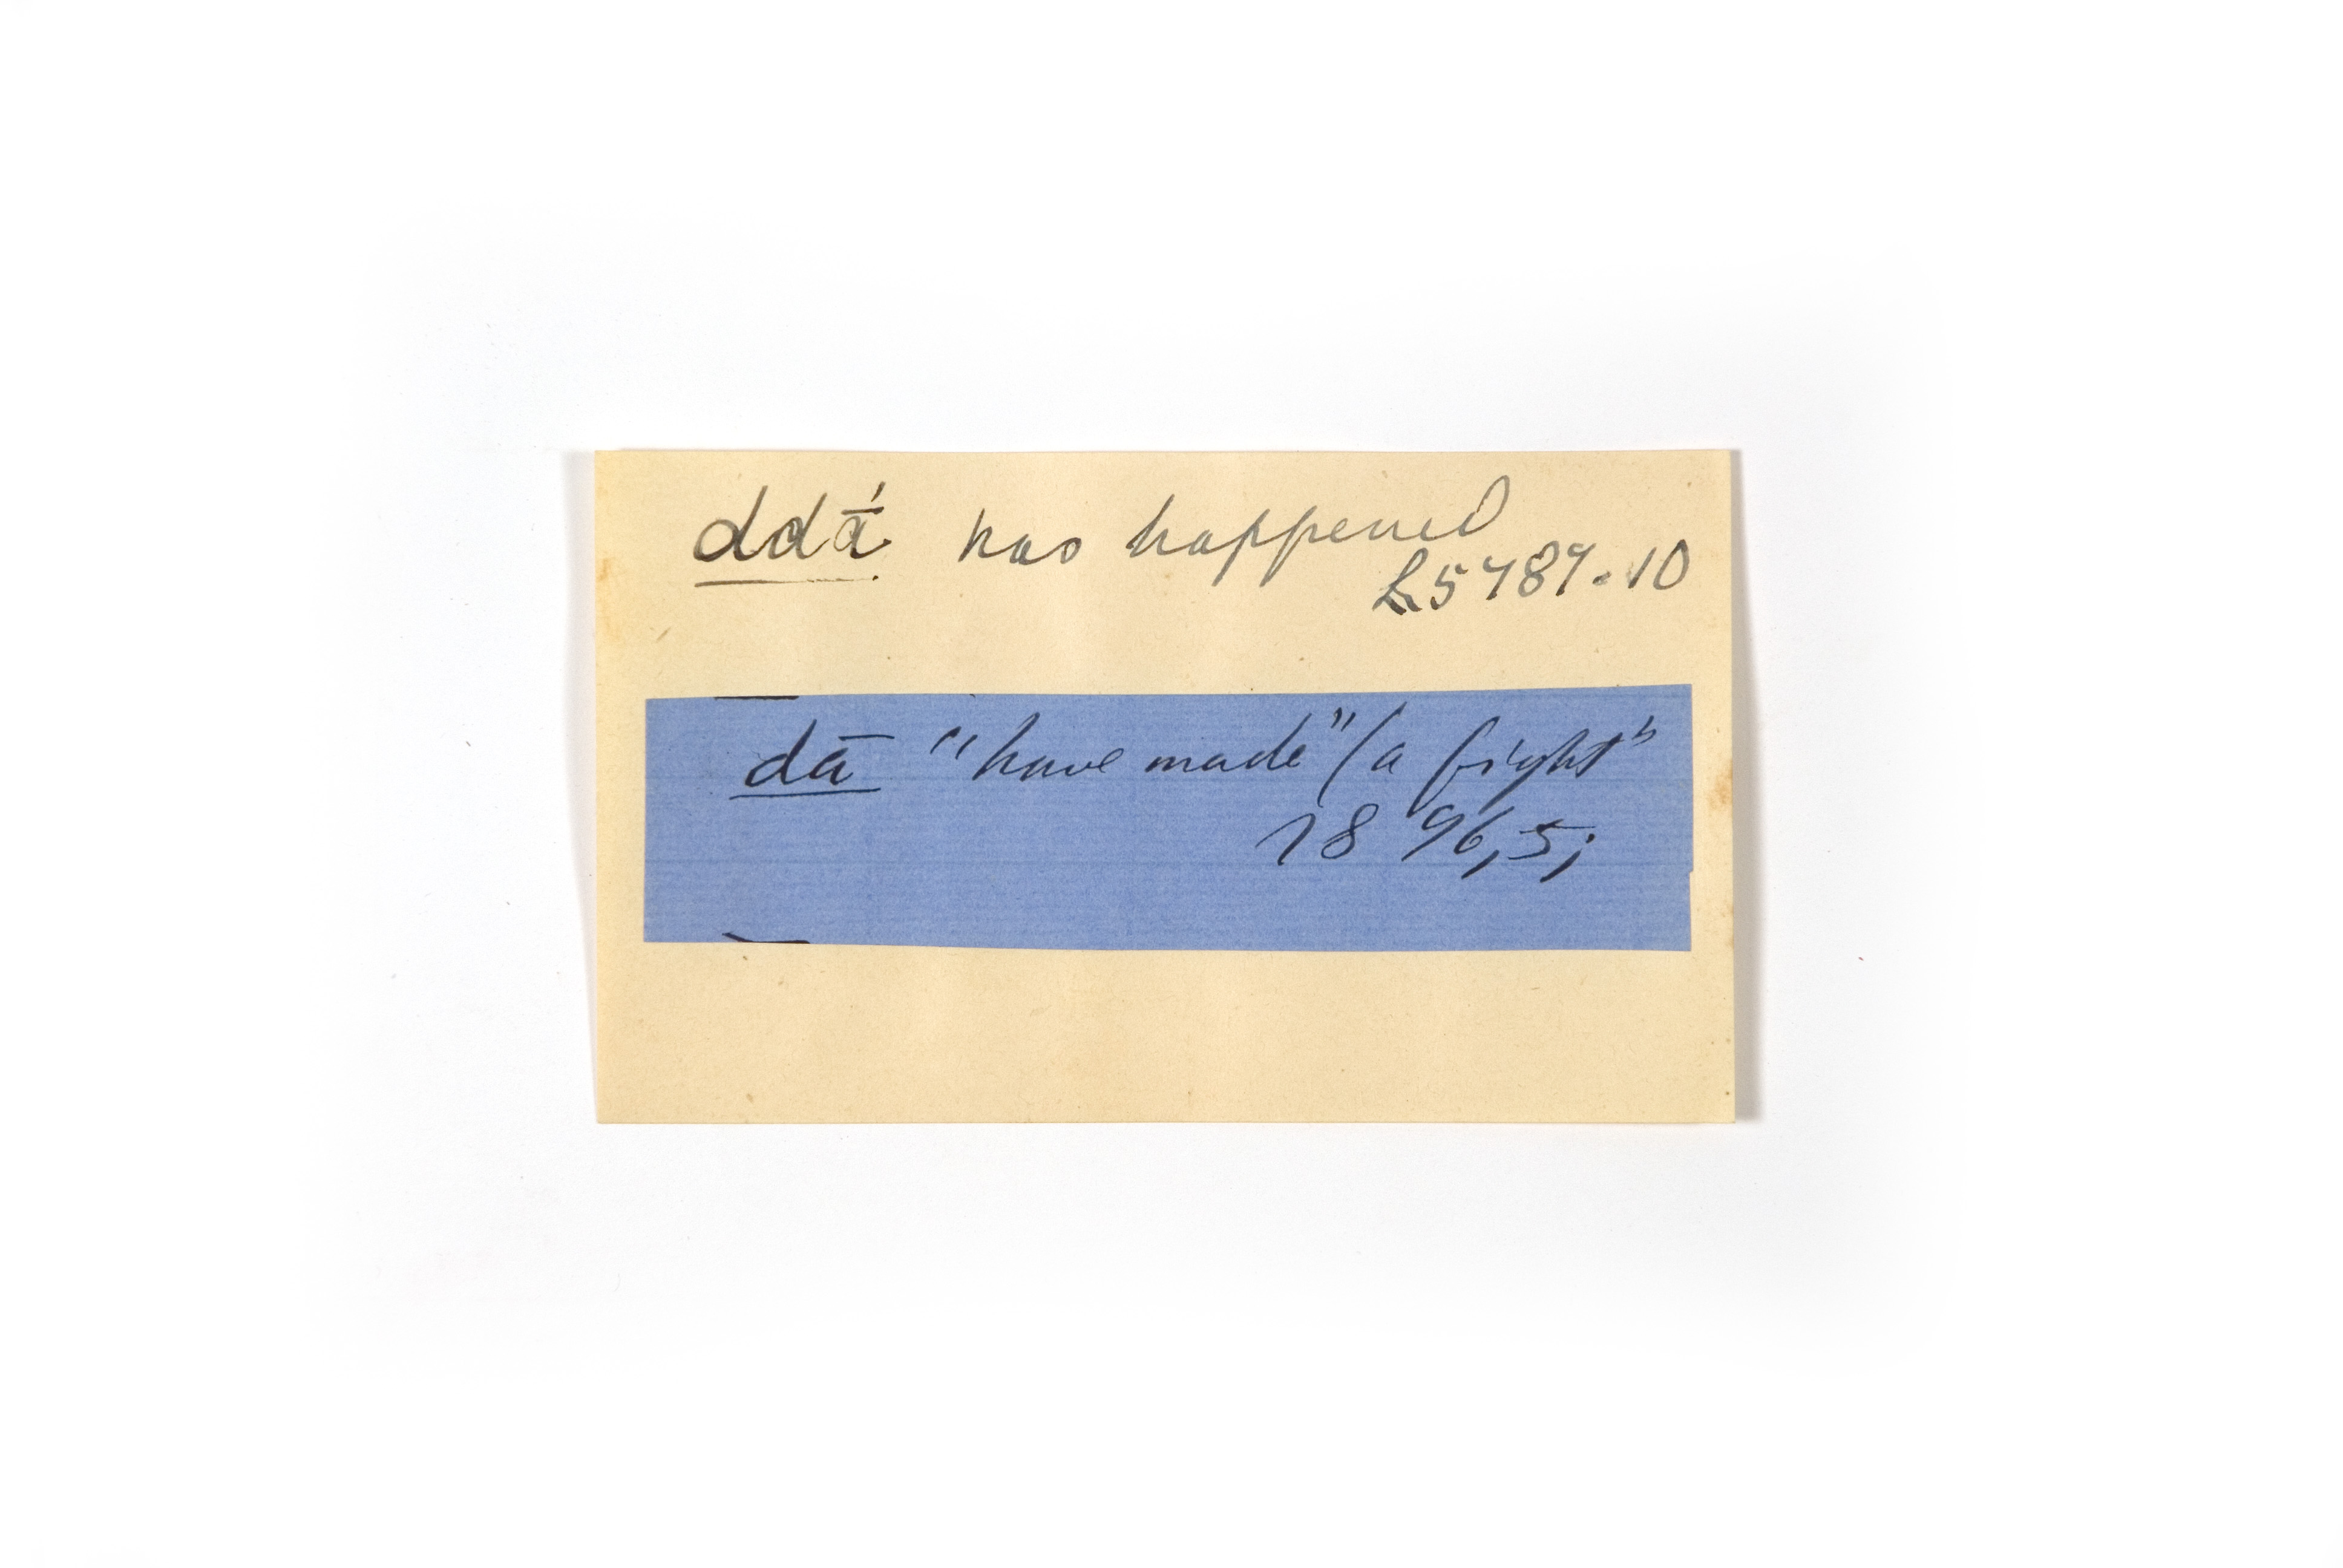 ddā́ has happened
L5487.10
dā "have made" (a fight"
28 96,5;